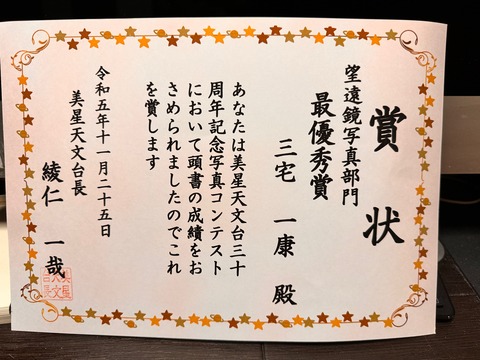 賞状
望遠鏡写真部門
最優秀賞
三宅 一康 殿
あなたは美星天文台三十
周年記念写真コンテスト
において頭書の成績をお
さめられましたのでこれ
を賞します
令和五年十一月二十五日
美星天文台長
綾仁 一哉
美星
天文
台長